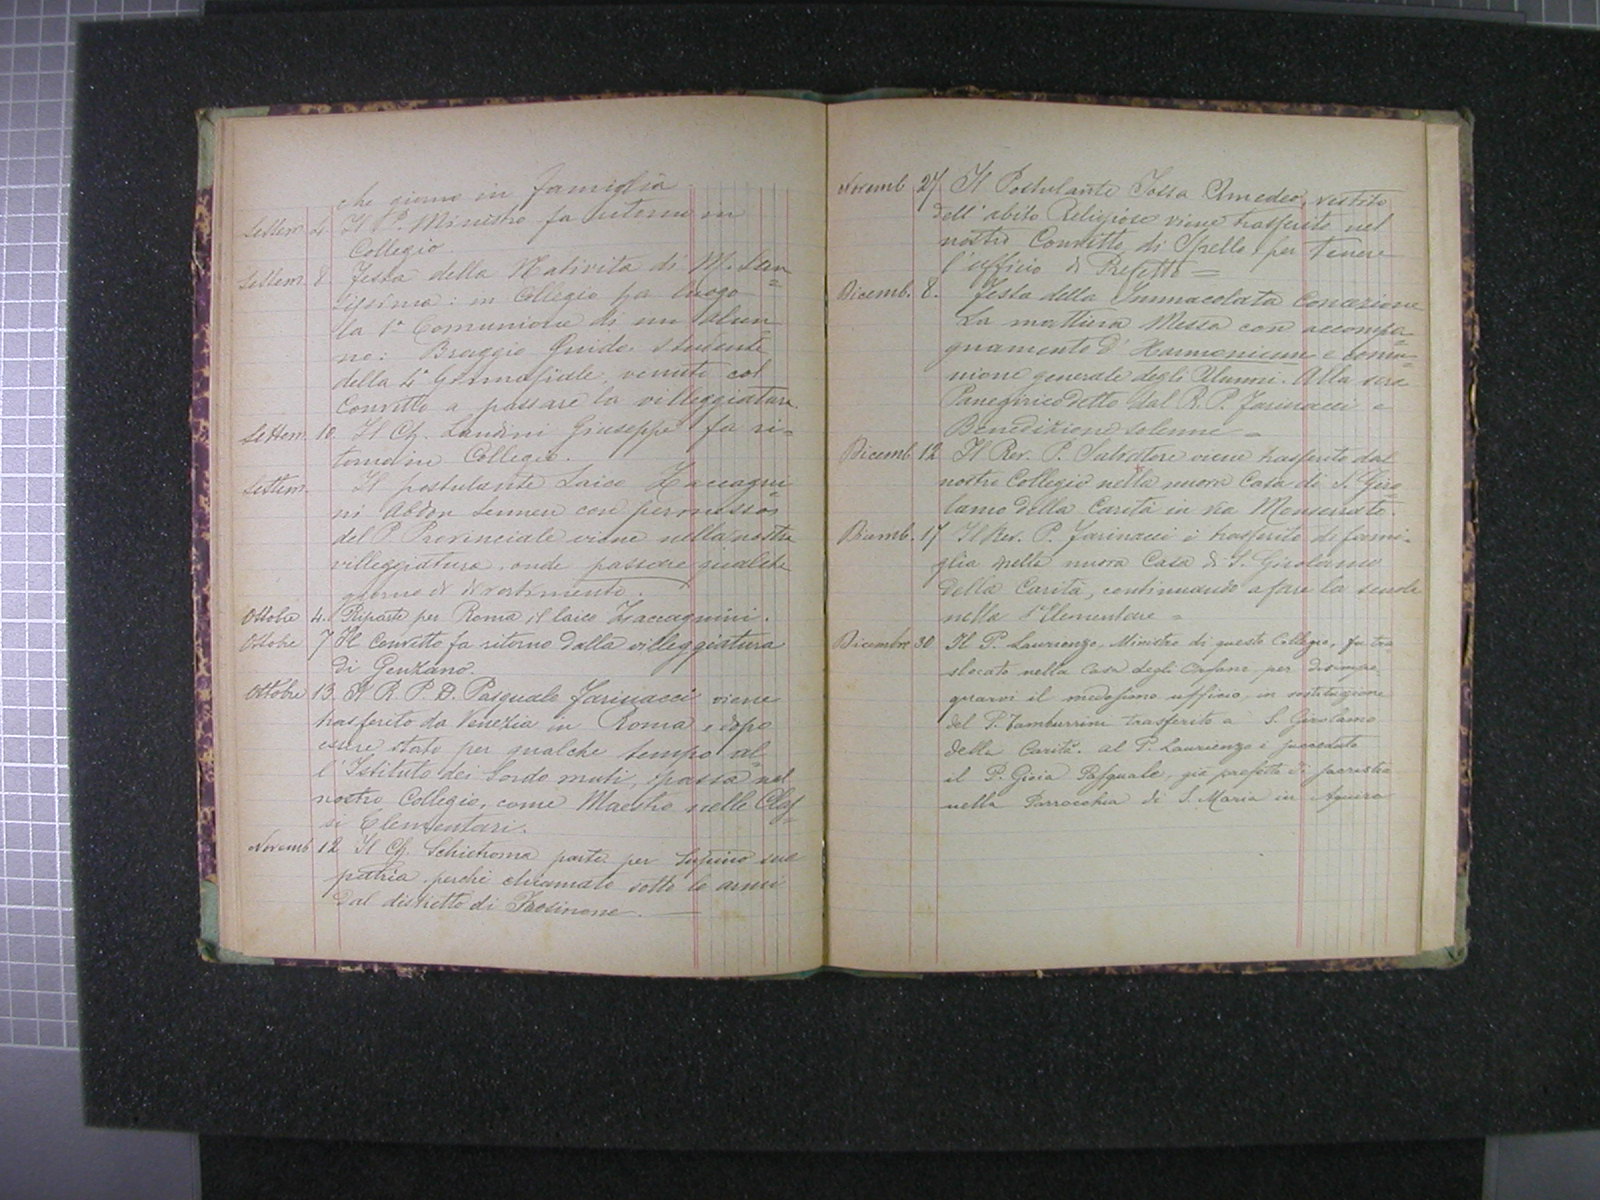 che giorno in famiglia
Settem. 4. Il P. Ministro fa ritorno in
Collegio.
Settem. 8. Festa della Natività di M. San=
tissima: in Collegio ha luogo
la 1ª Comunione di un alun=
no: Braggio Guido, studente
della 4ª Ginnasiale, venuto col
Convitto a passare la villeggiatura.
Settem. 10. Il Ch. Landini Giuseppe fa ri=
torno in Collegio.
Settem. Il postulante Laico Zaccagni=
ni Abdon Sennen con permesso
del P. Provinciale viene nella nostra
villeggiatura, onde passare qualche
giorno di divertimento.
Ottobre 4. Riparte per Roma il laico Zaccagnini.
Ottobre 7 Il Convitto fa ritorno dalla villeggiatura
di Genzano.
Ottobre 13. Il R. P. D. Pasquale Farinacci viene
trasferito da Venezia in Roma e dopo
essere stato per qualche tempo al=
l'Istituto dei Sordo muti, passa nel
nostro Collegio, come Maestro nelle Clas=
si Elementari.
Novemb. 12 Il Ch. Schietroma parte per Supino sua
patria, perchè chiamato sotto le armi
dal distretto di Frosinone.
Novemb. 27 Il Postulante Tossa Amedeo, vestito
dell'abito Religioso viene trasferito nel
nostro Convitto di Spello per tenere
l'ufficio di Prefetto =
Dicemb. 8. Festa della Immacolata Concezione
La mattina Messa con accompa=
gnamento d'Harmonium e comu=
nione generale degli Alunni. Alla sera
Panegirico detto dal R. P. Farinacci e
Benedizione solenne =
Dicemb. 12 Il Rev. P. Salvatore viene trasferito dal
nostro Collegio nella nuova Casa di S. Giro=
lamo della Carità in via Monserrato.
Dicemb. 17 Il Rev. P. Farinacci è trasferito di fami=
glia nella nuova Casa di S. Girolamo
della Carità, continuando a fare la scuola
nella Elementare =
Dicembre 30 Il P. Laurienzo, Ministro di questo Collegio, fu tra
slocato nella Casa degli Orfani per disimpe
gnarvi il medesimo ufficio, in sostituzione
del P. Tamburrini trasferito a S. Girolamo
della Carità. al P. Laurienzo è succeduto
il P. Gioia Pasquale, già prefetto di sacristia
nella Parrocchia di S. Maria in Aquiro